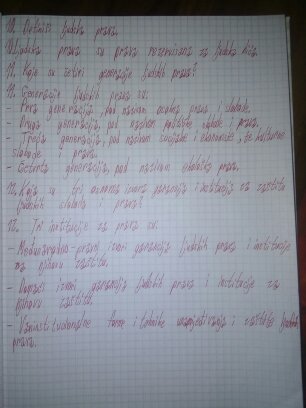 10. Definiši ljudska prava.
10. Ljudska prava su prava rezervisana za ljudska bića.
11. Koje su četiri generacije ljudskih prava?
11. Generacije ljudskih prava su:
- Prva generacija, pod nazivom osobna prava i slobode.
- Druga generacija, pod nazivom političke slobode i prava.
- Treća generacija, pod nazivom socijalne i ekonomske, te kulturne
slobode i prava.
- Četvrta generacija, pod nazivom ekološka prava.
12. Koja su tri osnovna izvora garancija i institucija za zaštitu
ljudskih sloboda i prava?
12. Tri institucije za prava su:
- Međunarodno-pravni izvori garancija ljudskih prava i institucije
za njihovu zaštitu.
- Domaći izvori garancija ljudskih prava i institucije za
njihovu zaštitu.
- Vaninstitucionalne forme i tehnike unaprjeđivanja i zaštite ljudskih
prava.